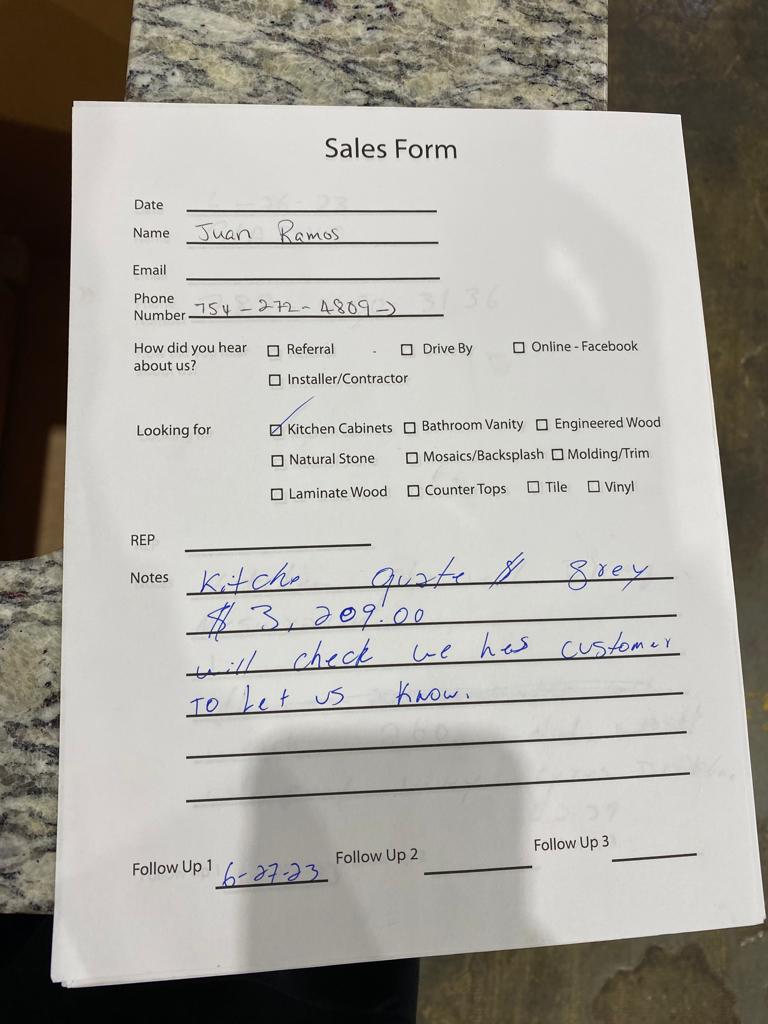 Sales Form
Date
Name Juan Ramos
Email
Phone
Number 754-272-4809
How did you hear
about us?
Referral
Drive By
Online - Facebook
Installer/Contractor
Looking for
Kitchen Cabinets
Bathroom Vanity
Engineered Wood
Natural Stone
Mosaics/Backsplash
Molding/Trim
Laminate Wood
Counter Tops
Tile
Vinyl
REP
Notes Kitche quate $ grey
$3,209.00
will check we has customer
TO Let us know.
Follow Up 1 6-27-23
Follow Up 2
Follow Up 3